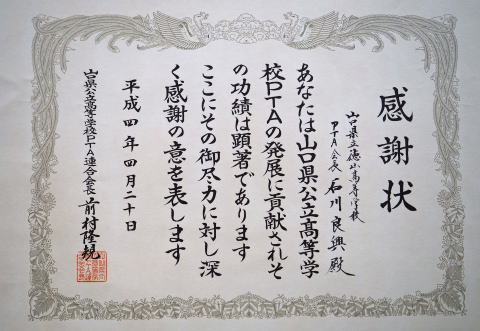 感謝状
山口県立徳山高等学校
PTA会長 石川良興殿
あなたは山口県公立高等学
校PTAの発展に貢献されそ
の功績は顕著であります
ここにその御尽力に対し深
く感謝の意を表します
平成四年四月二十日
山口県公立高等学校PTA連合会会長 前村隆規